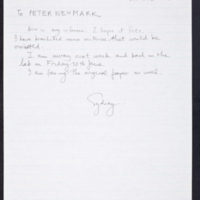 To PETER NEWMARK
Here is my I hope it fits.
I have bracketed some sections that could be
omitted.
I am away next week and back in the
lab on Friday 20th June.
I am faxing the original paper as well.
Sydney